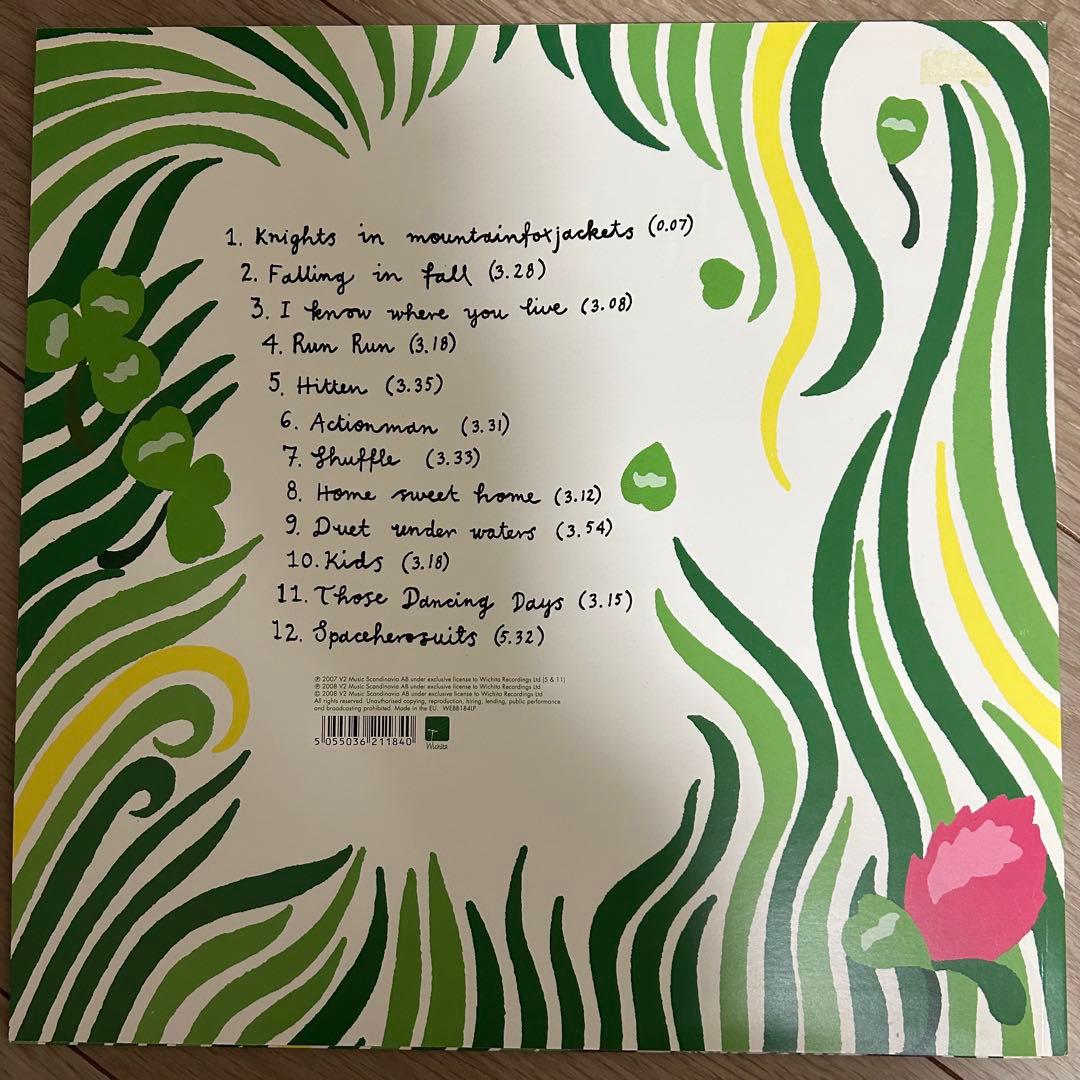 1. Knights in mountainfoxjackets (0.07)
2. Falling in fall (3.28)
3. I know where you live (3.08)
4. Run Run (3.18)
5. Hitten (3.35)
6. Actionman (3.31)
7. Shuffle (3.33)
8. Home sweet home (3.12)
9. Duet under waters (3.54)
10. Kids (3.18)
11. Those Dancing Days (3.15)
12. Spaceherosuits (5.32)
℗ 2007 V2 Music Scandinavia AB under exclusive license to Wichita Recordings Ltd (5 & 11)
℗ 2008 V2 Music Scandinavia AB under exclusive license to Wichita Recordings Ltd
© 2008 V2 Music Scandinavia AB under exclusive license to Wichita Recordings Ltd
All rights reserved. Unauthorised copying, reproduction, hiring, lending, public performance
and broadcasting prohibited. Made in the EU. WEBB184LP
5 055036 211840
Wichita